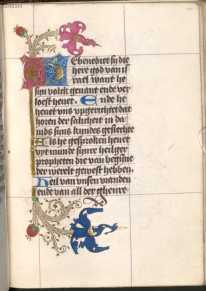 Ebenedict si die
here god van is
rael want he
sijn volck
ende ver
loest hevet. Ende he
hevet ons upgerichtet dat
horen der salicheit in da
uids sijns kindes geslechte
Als he gesproken hevet
vyt munde synre heiliger
propheten die van beginne
der werelt gewest hebben.
Heil van unsen vianden
ende van all der ghenre